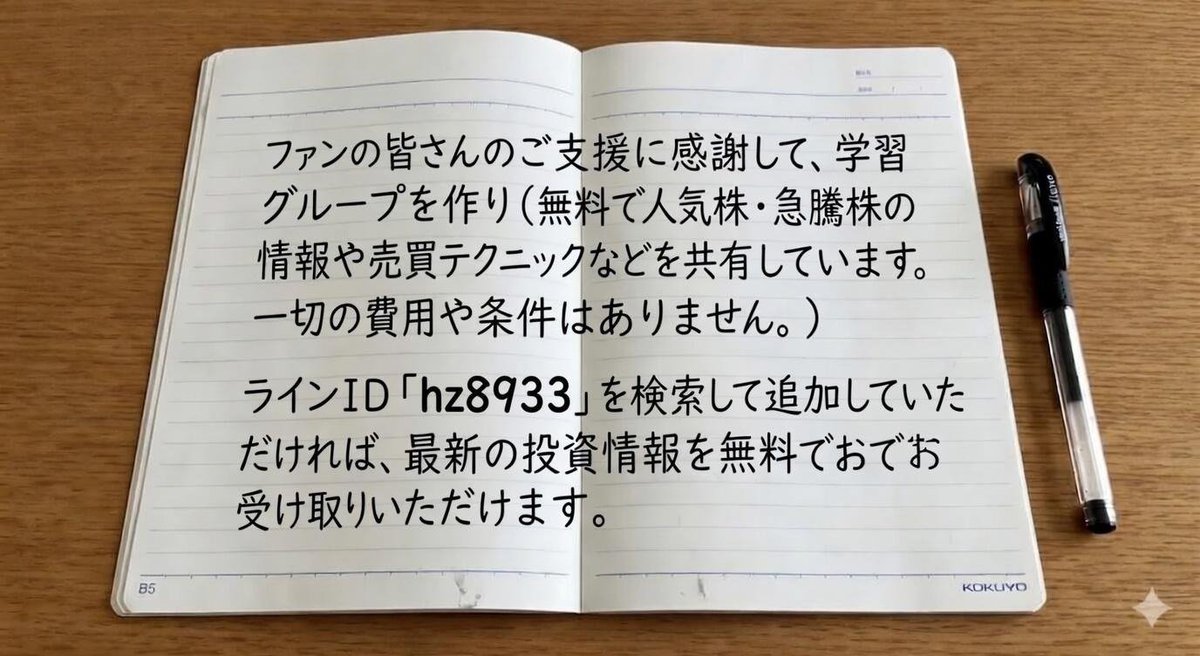 ファンの皆さんのご支援に感謝して、学習
グループを作り(無料で人気株・急騰株の
情報や売買テクニックなどを共有しています。
一切の費用や条件はありません。)
ラインID「hz8933」を検索して追加していた
だければ、最新の投資情報を無料でおでお
受け取りいただけます。
B5
KOKUYO